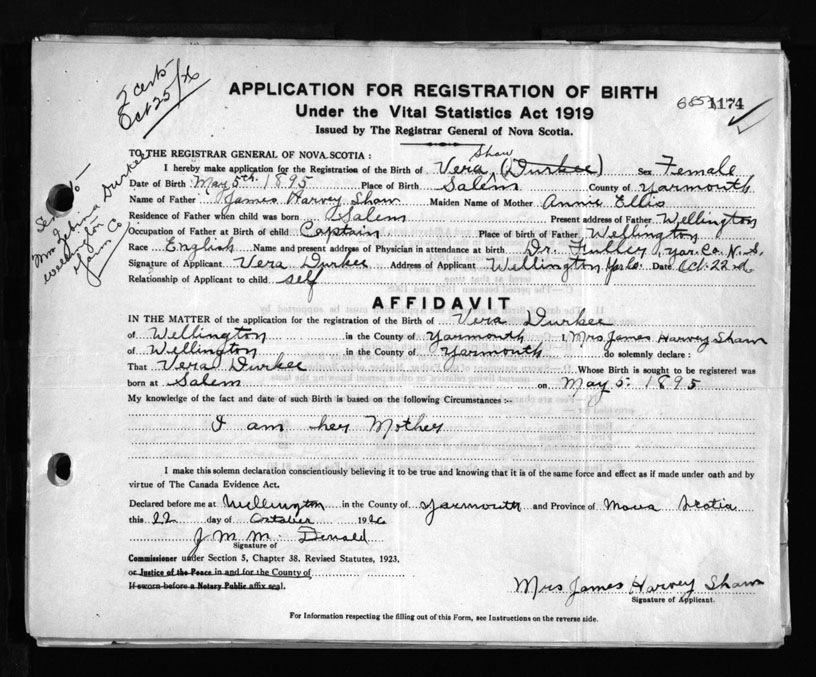 2 certs
Oct 25/26
APPLICATION FOR REGISTRATION OF BIRTH
Under the Vital Statistics Act 1919
Issued by The Registrar General of Nova Scotia.
1174
TO THE REGISTRAR GENERAL OF NOVA SCOTIA:
Shaw
I hereby make application for the Registration of the Birth of Vera (Durkee) Sex Female
Date of Birth May 5th 1895 Place of Birth Salem County of Yarmouth
Name of Father James Harvey Shaw Maiden Name of Mother Annie Ellis
Residence of Father when child was born Salem Present address of Father Wellington
Occupation of Father at Birth of child Captain Place of birth of Father Wellington
Race English Name and present address of Physician in attendance at birth Dr. Fuller Yar. Co. N. S.
Signature of Applicant Vera Durkee Address of Applicant Wellington Yar. Co. Date Oct. 22nd
Relationship of Applicant to child self
Mrs Durkee
Wellington
Yarm Co
AFFIDAVIT
IN THE MATTER of the application for the registration of the Birth of Vera Durkee
of Wellington in the County of Yarmouth I, Mrs James Harvey Shaw
of Wellington in the County of Yarmouth do solemnly declare:
That Vera Durkee Whose Birth is sought to be registered was
born at Salem on May 5. 1895
My knowledge of the fact and date of such Birth is based on the following Circumstances:-
I am her Mother
I make this solemn declaration conscientiously believing it to be true and knowing that it is of the same force and effect as if made under oath and by
virtue of The Canada Evidence Act.
Declared before me at Wellington in the County of Yarmouth and Province of Nova Scotia
this 22 day of October 1926
J M M Denald
Signature of
Commissioner under Section 5, Chapter 38, Revised Statutes, 1923.
or Justice of the Peace in and for the County of
If sworn before a Notary Public affix seal.
Mrs James Harvey Shaw
Signature of Applicant.
For Information respecting the filling out of this Form, see Instructions on the reverse side.